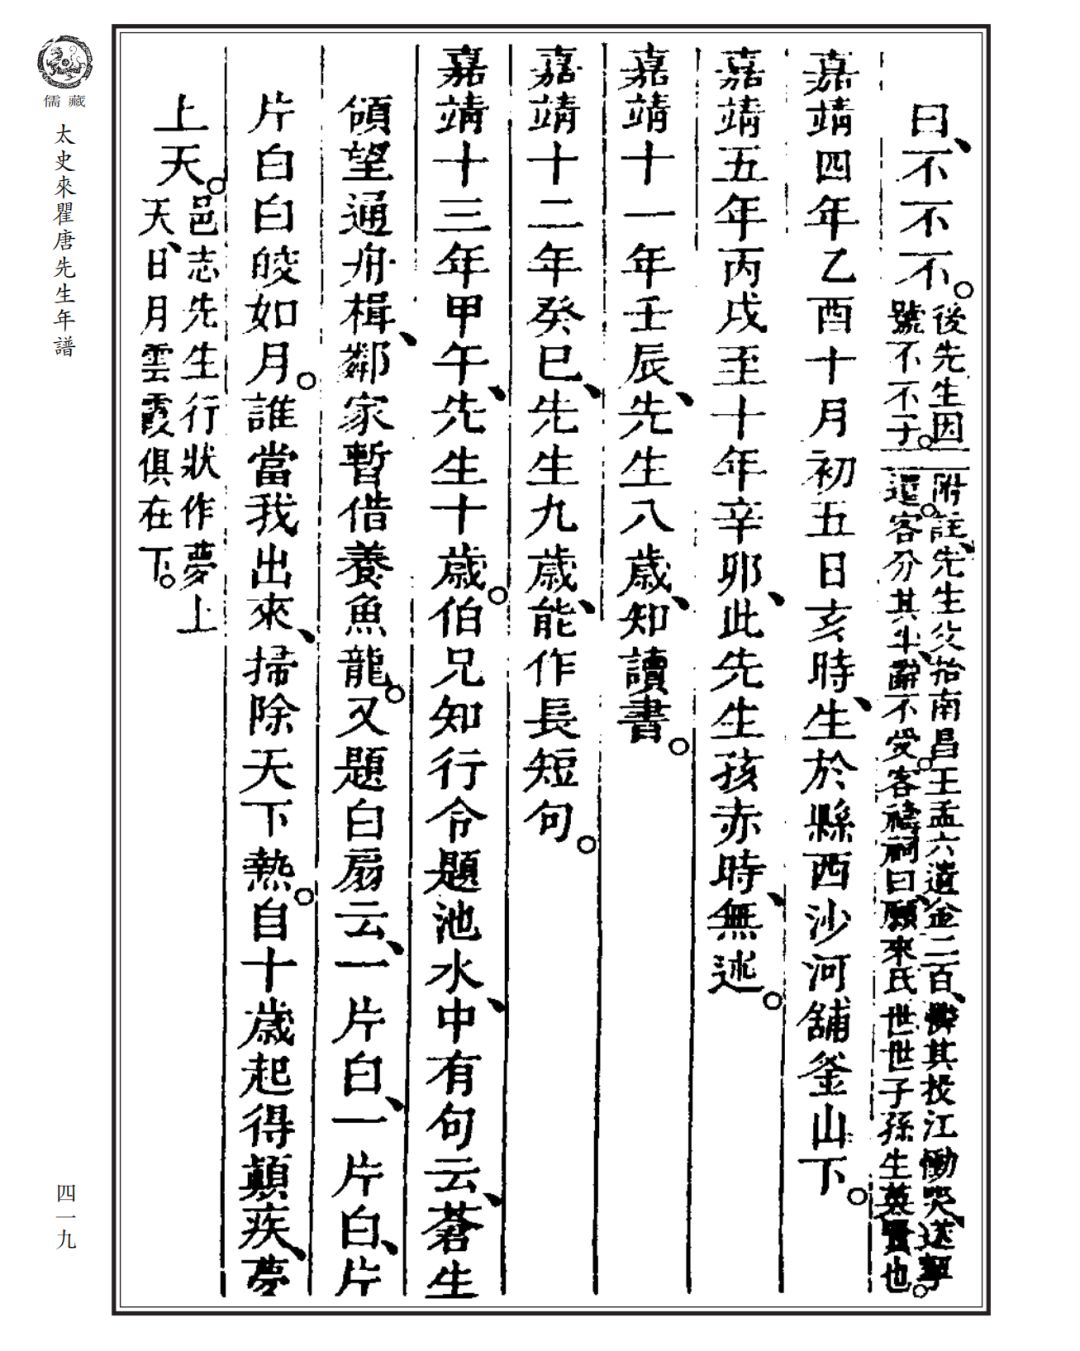 曰、不不不。後先生因號不不子。附註、先生父拾南昌王孟六遺金二百、憐其投江慟哭、送還。客分其半、辭不受。客禱祠曰、願來氏世世子孫生英賢也。
嘉靖四年乙酉十月初五日亥時、生於縣西沙河舖釜山下。
嘉靖五年丙戌至十年辛卯、此先生孩赤時、無述。
嘉靖十一年壬辰、先生八歲、知讀書。
嘉靖十二年癸巳、先生九歲、能作長短句。
嘉靖十三年甲午、先生十歲。伯兄知行令題池水、中有句云、蒼生
傾望通舟楫、鄰家暫借養魚龍。又題白扇云、一片白、一片白、片
片白白皎如月。誰當我出來、掃除天下熱。自十歲起得顛疾、夢
上天。邑志先生行狀作夢上天、日月雲霞俱在下。
儒藏
太史來瞿唐先生年譜
四一九